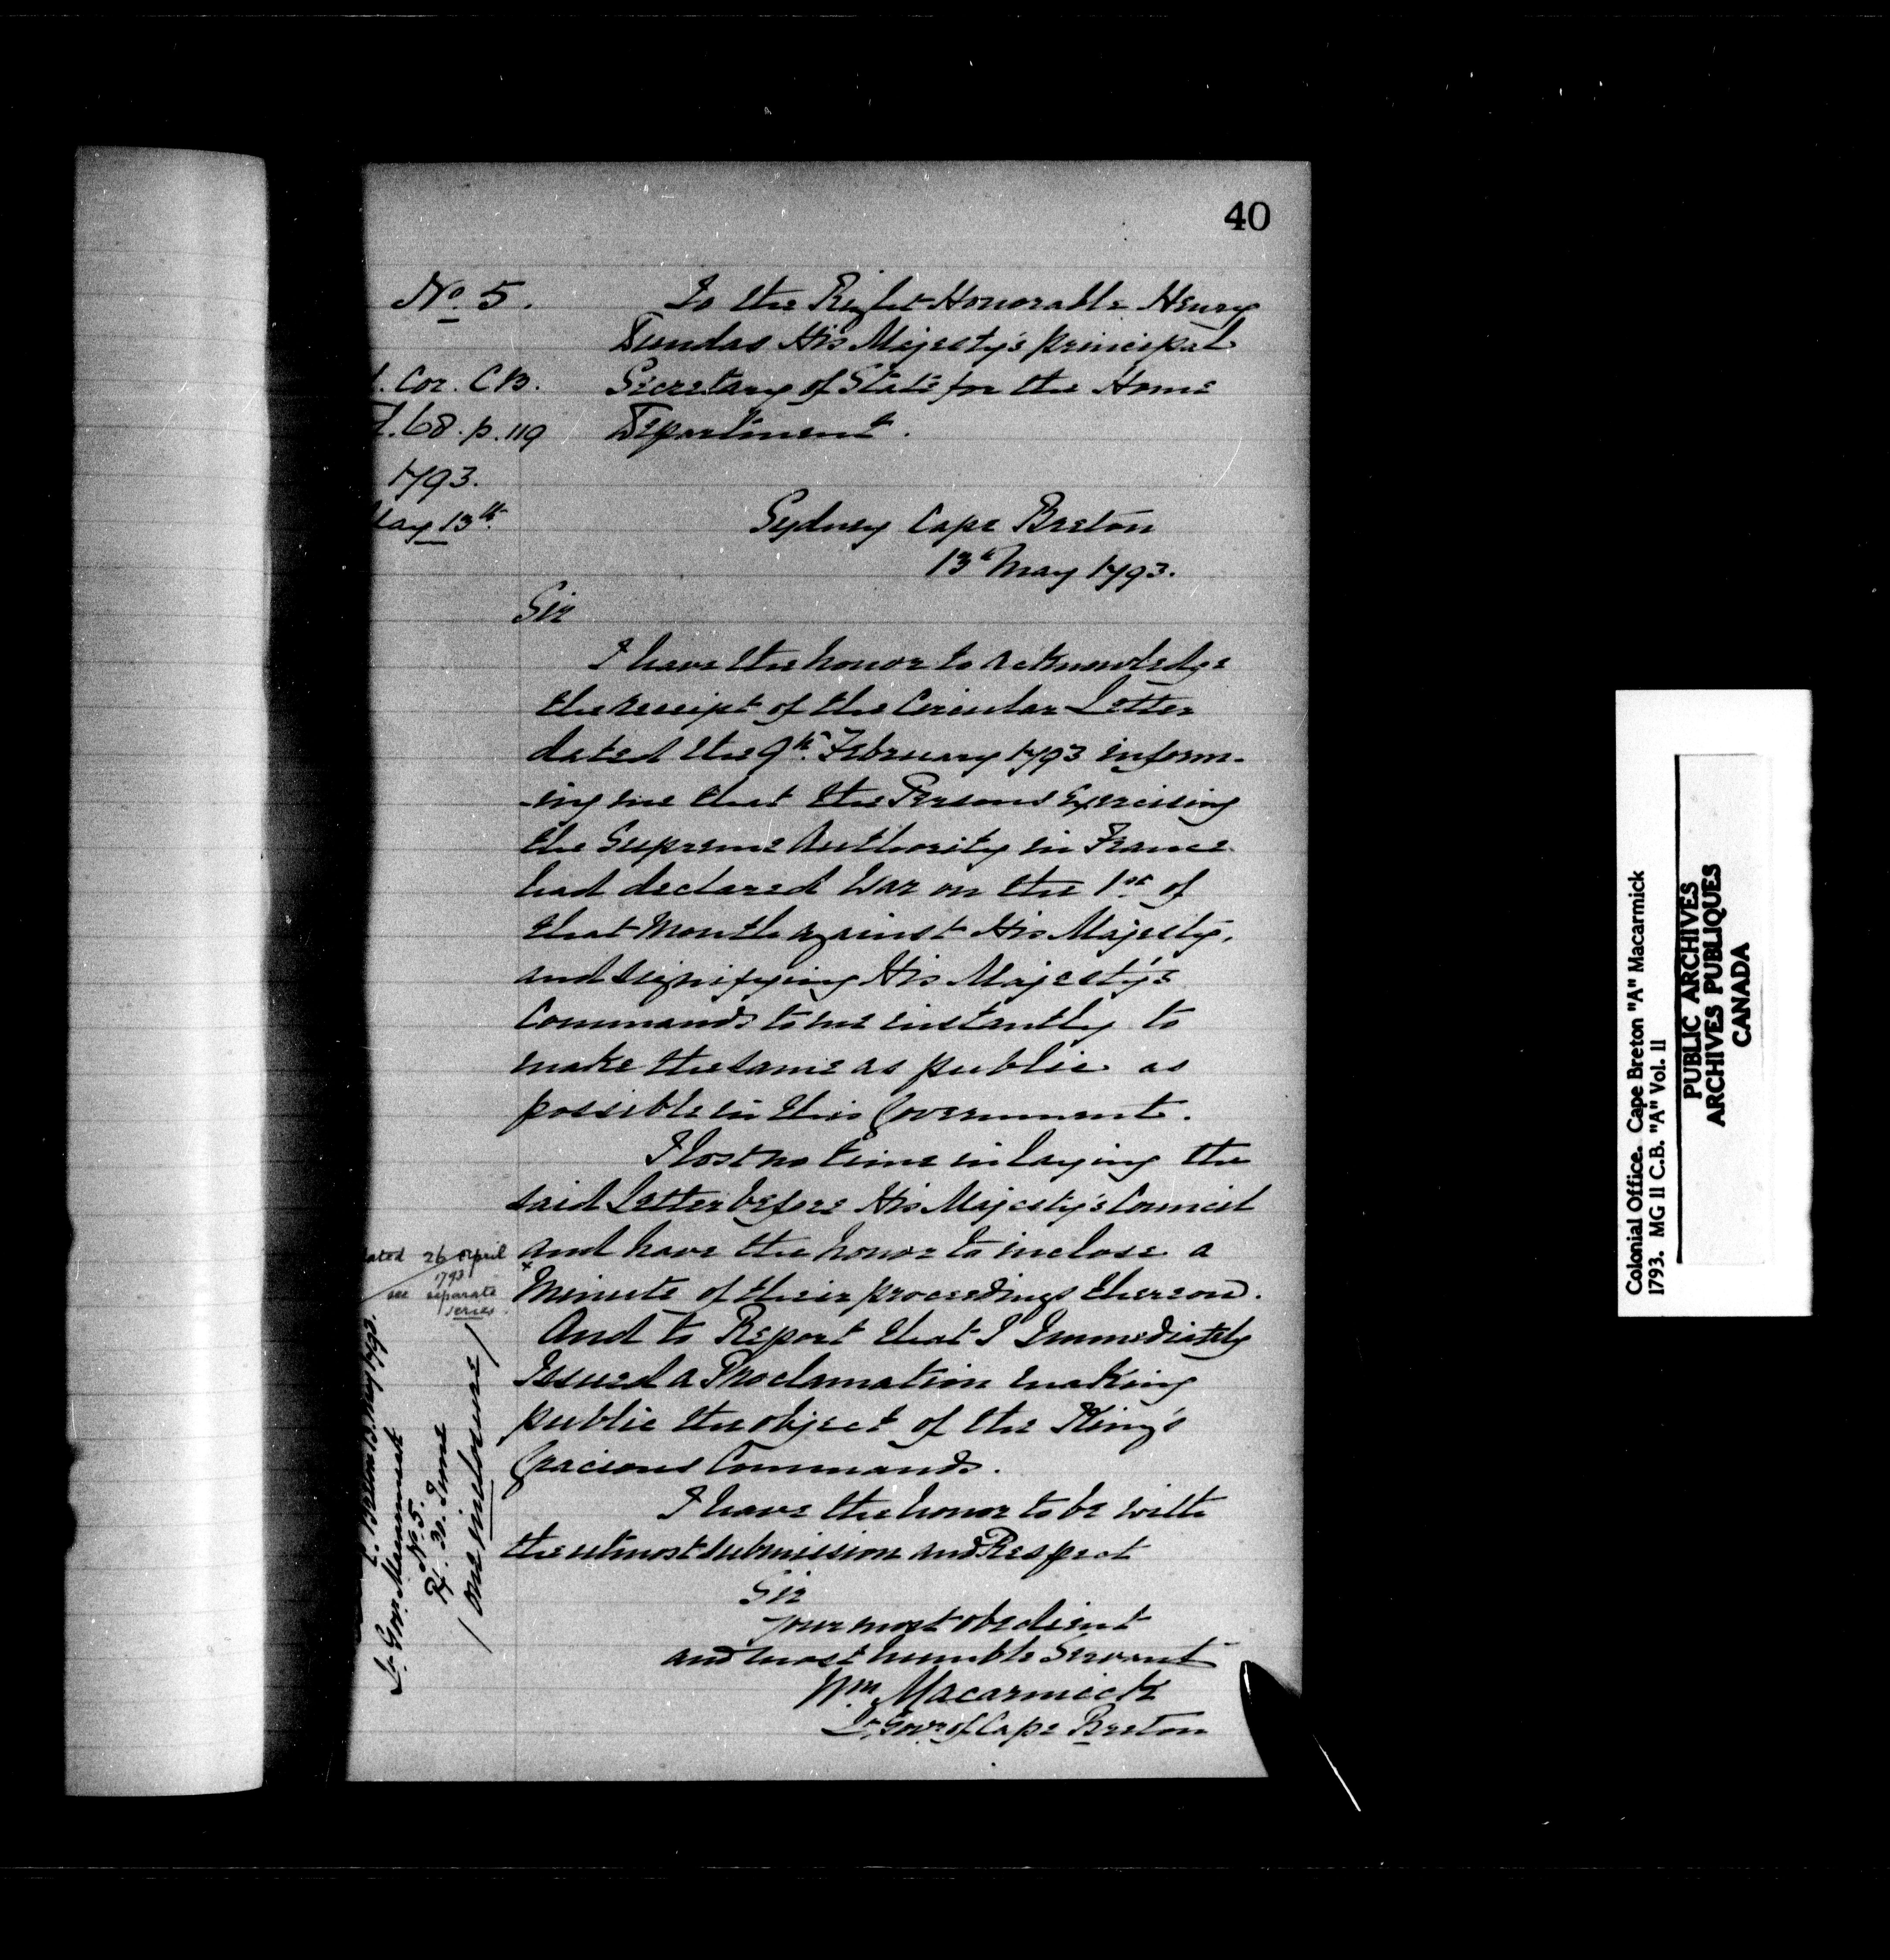 40
No. 5.
To the Right Honorable Henry
Dundas His Majesty's principal
Secretary of State for the Home
Department.
. Cor. C B.
. 68. p. 119
1793.
May 13th.
Sydney Cape Breton
13th May 1793.
Sir
I have the honor to acknowledge
the receipt of the Circular Letter
dated the 9th. February 1793 inform-
-ing me that the Persons Exercising
the Supreme Authority in France
had declared War on the 1st of
that Month against His Majesty,
and signifying His Majesty's
Commands to me instantly to
make the same as public as
possible in this Government.
I lost no time in laying the
said Letter before His Majesty's Council
and have the honor to inclose a
x Minute of their proceedings thereon.
And to Report that I Immediately
Issued a Proclamation making
public the object of the King's
Gracious Commands.
I have the honor to be with
the utmost submission and Respect
Sir
Your most obedient
and most humble Servant
Wm. Macarmick
Lt. Govr. of Cape Breton
ated 26 April
1793
see separate
series
C. Breton 13. May 1793.
Lt. Govr. Macarmick
No. 5.
R. 30. June
/ One inclosure /
Colonial Office. Cape Breton "A" Macarmick
1793. MG 11 C.B. "A" Vol. 11
PUBLIC ARCHIVES
ARCHIVES PUBLIQUES
CANADA